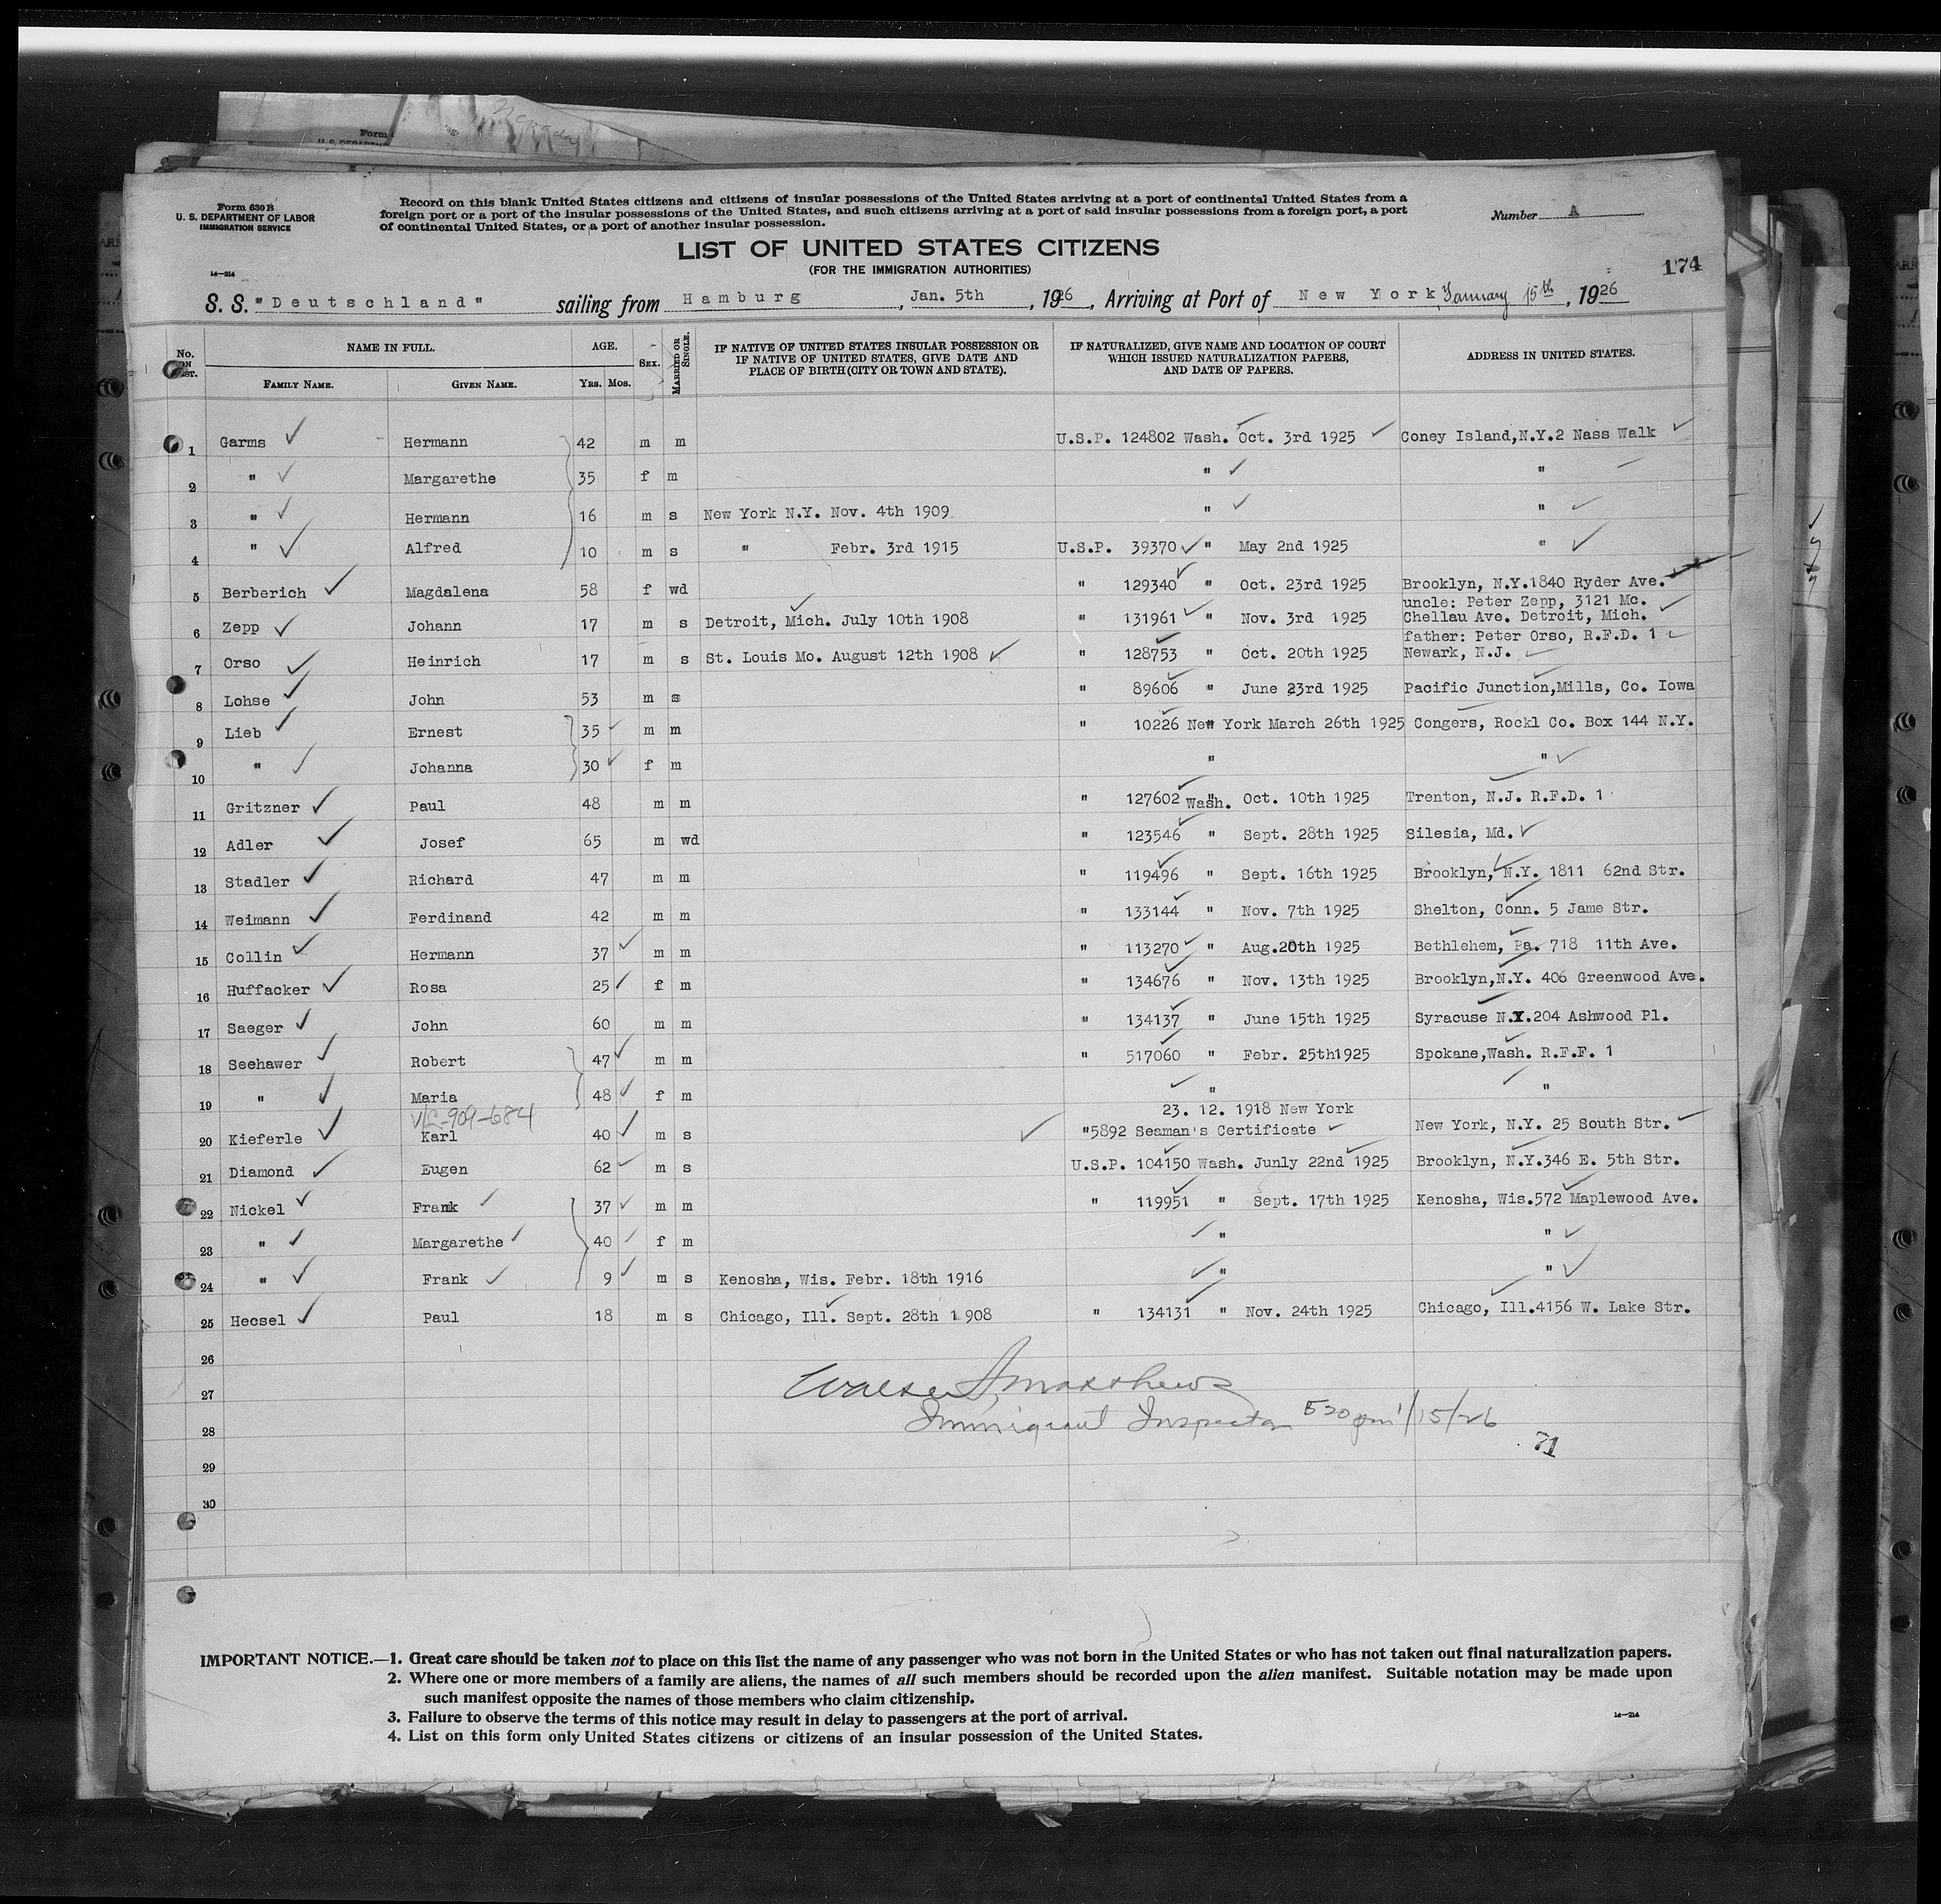 Form 630 B
U. S. DEPARTMENT OF LABOR
IMMIGRATION SERVICE
Record on this blank United States citizens and citizens of insular possessions of the United States arriving at a port of continental United States from a
foreign port or a port of the insular possessions of the United States, and such citizens arriving at a port of said insular possessions from a foreign port, a port
of continental United States, or a port of another insular possession.
Number A
LIST OF UNITED STATES CITIZENS
(FOR THE IMMIGRATION AUTHORITIES)
14—214
174
S. S. "Deutschland" sailing from Hamburg, Jan. 5th, 1926, Arriving at Port of New York, January 15th, 1926
No. ON LIST. NAME IN FULL. AGE. SEX. MARRIED OR SINGLE. IF NATIVE OF UNITED STATES INSULAR POSSESSION OR IF NATIVE OF UNITED STATES, GIVE DATE AND PLACE OF BIRTH (CITY OR TOWN AND STATE). IF NATURALIZED, GIVE NAME AND LOCATION OF COURT WHICH ISSUED NATURALIZATION PAPERS, AND DATE OF PAPERS. ADDRESS IN UNITED STATES.
FAMILY NAME. GIVEN NAME. YRS. MOS.
1 Garms Hermann 42 m m U.S.P. 124802 Wash. Oct. 3rd 1925 Coney Island,N.Y.2 Nass Walk
2 " Margarethe 35 f m " "
3 " Hermann 16 m s New York N.Y. Nov. 4th 1909 " "
4 " Alfred 10 m s " Febr. 3rd 1915 U.S.P. 39370 " May 2nd 1925 "
5 Berberich Magdalena 58 f wd " 129340 " Oct. 23rd 1925 Brooklyn, N.Y.1840 Ryder Ave.
uncle: Peter Zepp, 3121 Mc.
6 Zepp Johann 17 m s Detroit, Mich. July 10th 1908 " 131961 " Nov. 3rd 1925 Chellau Ave. Detroit, Mich.
father: Peter Orso, R.F.D. 1
7 Orso Heinrich 17 m s St. Louis Mo. August 12th 1908 " 128753 " Oct. 20th 1925 Newark, N.J.
8 Lohse John 53 m s " 89606 " June 23rd 1925 Pacific Junction,Mills, Co. Iowa
9 Lieb Ernest 35 m m " 10226 New York March 26th 1925 Congers, Rockl Co. Box 144 N.Y.
10 " Johanna 30 f m " "
11 Gritzner Paul 48 m m " 127602 Wash. Oct. 10th 1925 Trenton, N.J. R.F.D. 1
12 Adler Josef 65 m wd " 123546 " Sept. 28th 1925 Silesia, Md.
13 Stadler Richard 47 m m " 119496 " Sept. 16th 1925 Brooklyn, N.Y. 1811 62nd Str.
14 Weimann Ferdinand 42 m m " 133144 " Nov. 7th 1925 Shelton, Conn. 5 Jame Str.
15 Collin Hermann 37 m m " 113270 " Aug.20th 1925 Bethlehem, Pa. 718 11th Ave.
16 Huffacker Rosa 25 f m " 134676 " Nov. 13th 1925 Brooklyn,N.Y. 406 Greenwood Ave.
17 Saeger John 60 m m " 134137 " June 15th 1925 Syracuse N.Y.204 Ashwood Pl.
18 Seehawer Robert 47 m m " 517060 " Febr. 25th1925 Spokane,Wash. R.F.F. 1
19 " Maria 48 f m " "
V/L-909-684 23. 12. 1918 New York
20 Kieferle Karl 40 m s "5892 Seaman's Certificate New York, N.Y. 25 South Str.
21 Diamond Eugen 62 m s U.S.P. 104150 Wash. Junly 22nd 1925 Brooklyn, N.Y.346 E. 5th Str.
22 Nickel Frank 37 m m " 119951 " Sept. 17th 1925 Kenosha, Wis.572 Maplewood Ave.
23 " Margarethe 40 f m " "
24 " Frank 9 m s Kenosha, Wis. Febr. 18th 1916 " "
25 Hecsel Paul 18 m s Chicago, Ill. Sept. 28th 1908 " 134131 " Nov. 24th 1925 Chicago, Ill.4156 W. Lake Str.
26
27 Matthews
28 Immigrant Inspector 530 pm 1/15/26
71
29
30
IMPORTANT NOTICE.—1. Great care should be taken not to place on this list the name of any passenger who was not born in the United States or who has not taken out final naturalization papers.
2. Where one or more members of a family are aliens, the names of all such members should be recorded upon the alien manifest. Suitable notation may be made upon
such manifest opposite the names of those members who claim citizenship.
3. Failure to observe the terms of this notice may result in delay to passengers at the port of arrival.
4. List on this form only United States citizens or citizens of an insular possession of the United States.
14—214